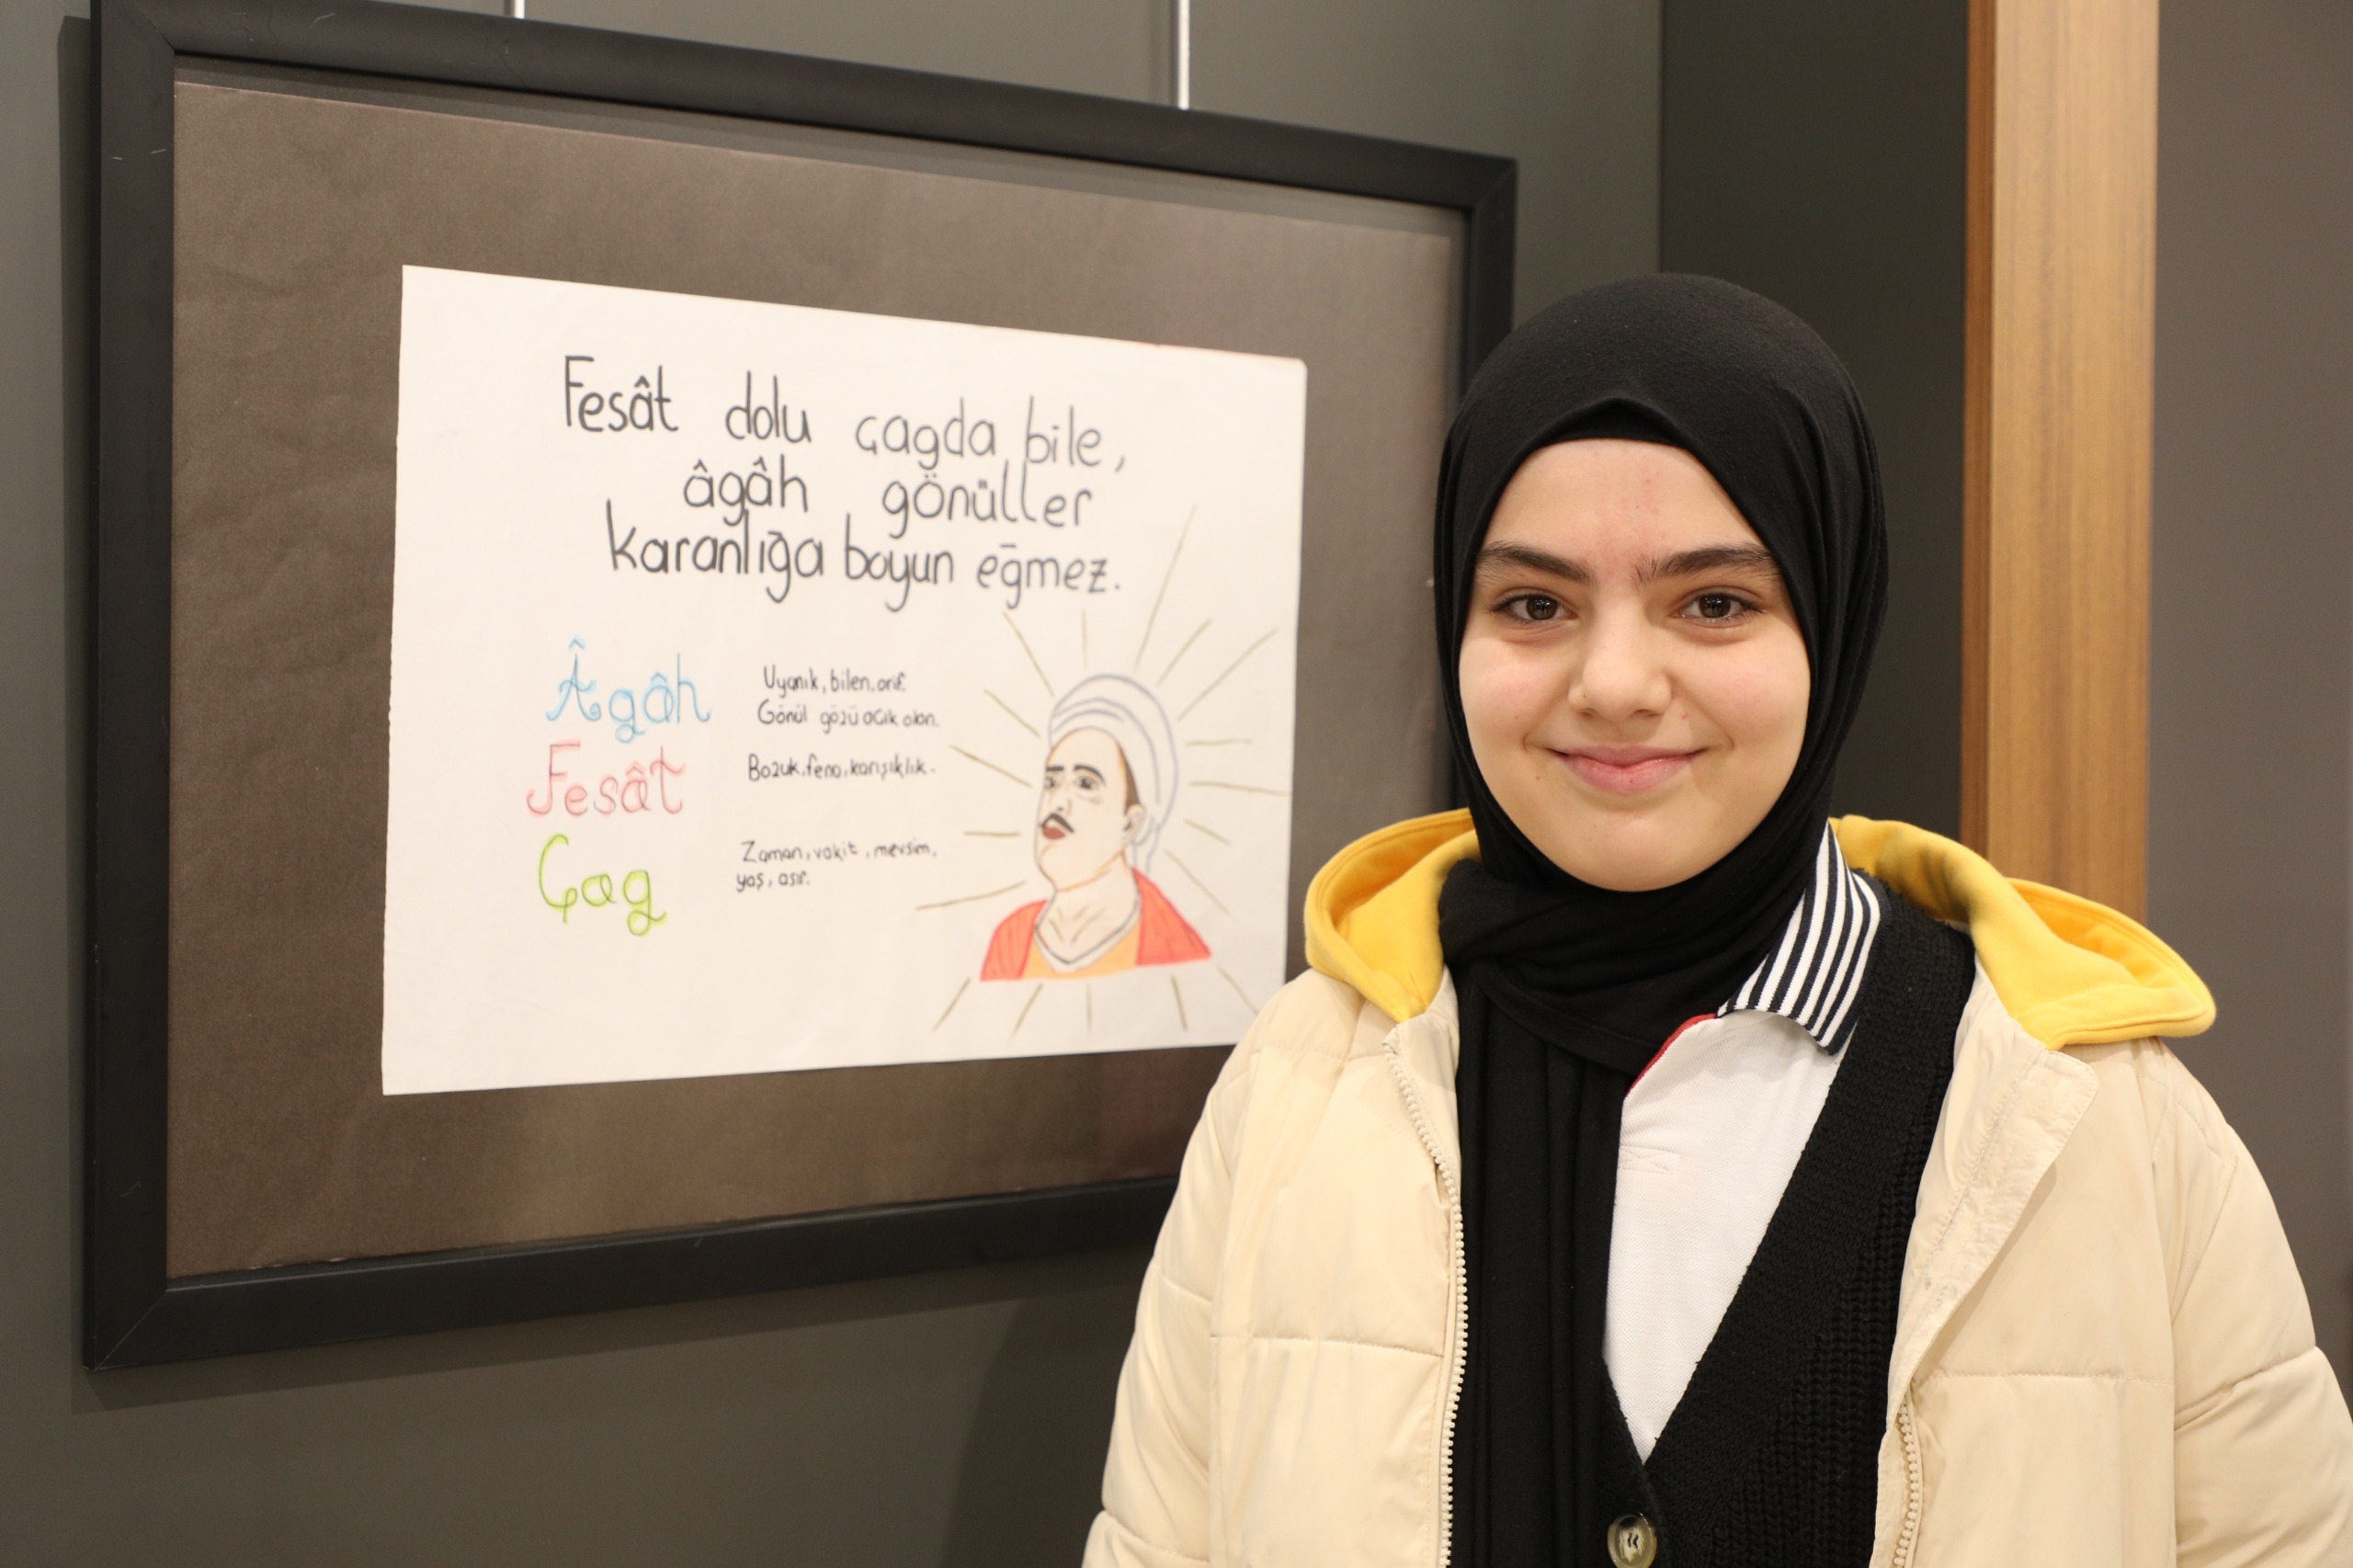 Fesât dolu çagda bile,
âgâh gönüller
karanlığa boyun eğmez.
Âgâh
Uyanık, bilen, arif.
Gönül gözü açık olan.
Fesât
Bozuk, fena, karışıklık.
Çag
Zaman, vakit, mevsim,
yaş, asır.